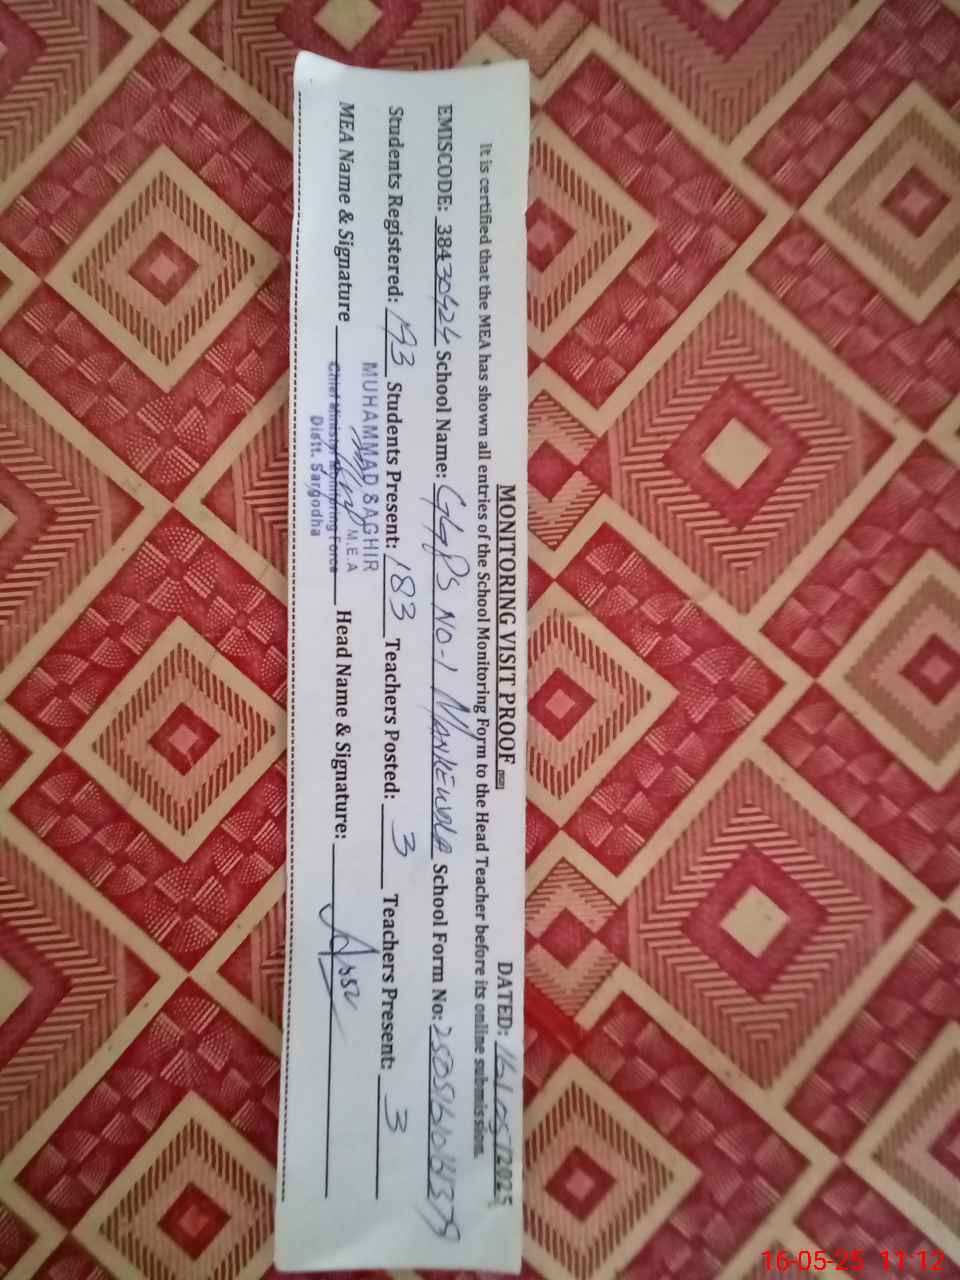 MONITORING VISIT PROOF DATED: 16/05/2025
It is certified that the MEA has shown all entries of the School Monitoring Form to the Head Teacher before its online submission.
EMISCODE: 38430424 School Name: GGPS NO-1 MANKEWALA School Form No:
Students Registered: 193 Students Present: 183 Teachers Posted: 3 Teachers Present: 3
MUHAMMAD SAGHIR
M.E.A
MEA Name & Signature Chief Minister Monitoring Force Head Name & Signature:
Distt. Sargodha
16-05-25 11:12